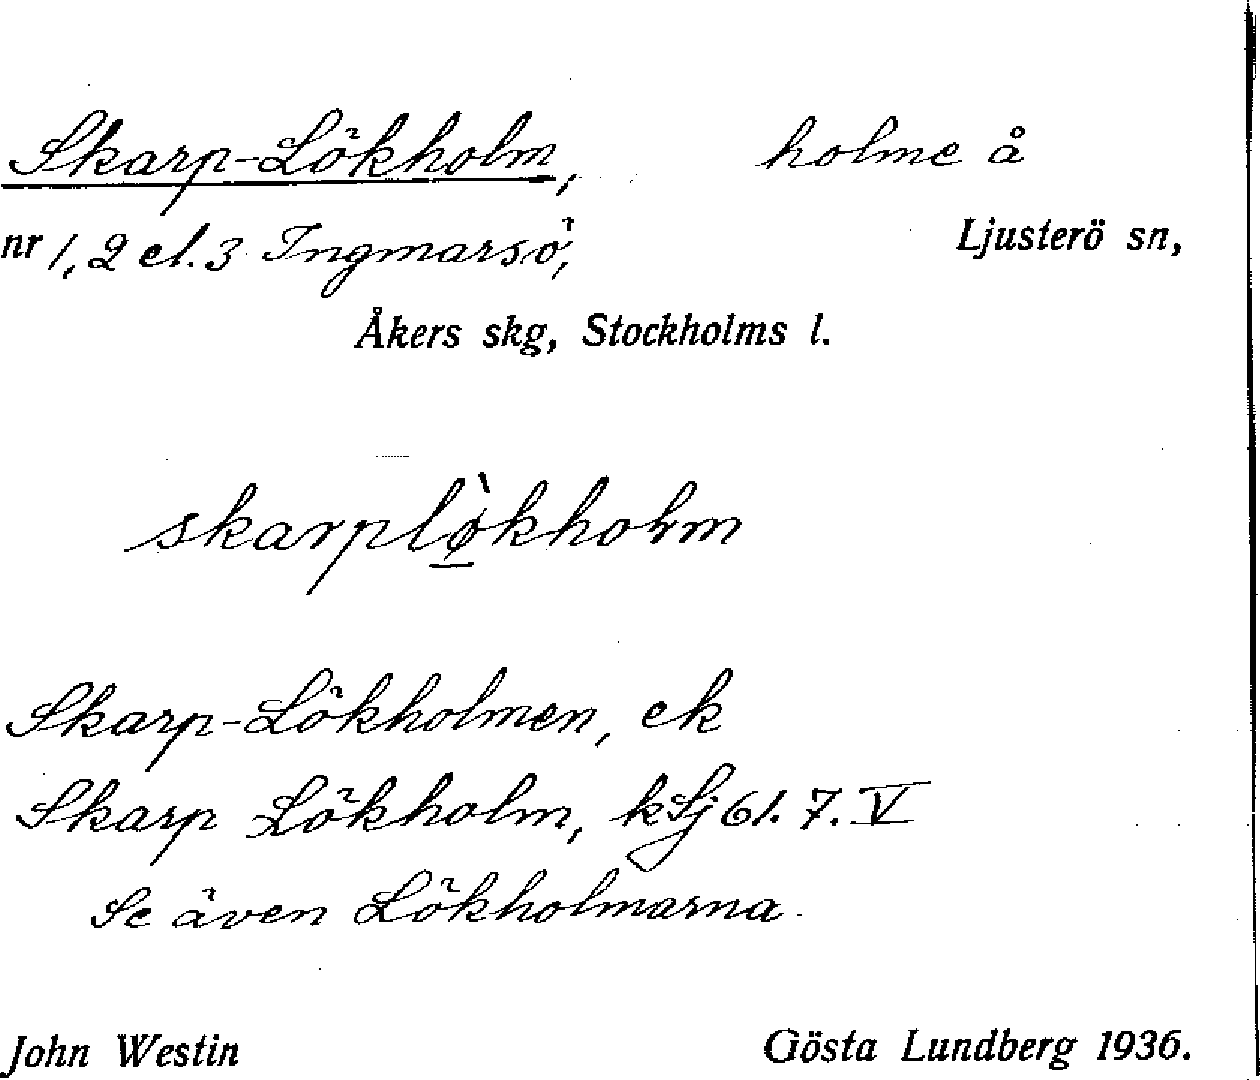 Skarp-Lökholm, holme å
nr 1, 2 el. 3 Ingmarsö, Ljusterö sn,
Åkers skg, Stockholms l.
skarplø̱̀kholm
Skarp-Lökholmen, ek
Skarp Lökholm, kSj 61. 7. V
Se även Lökholmarna.
John Westin Gösta Lundberg 1936.